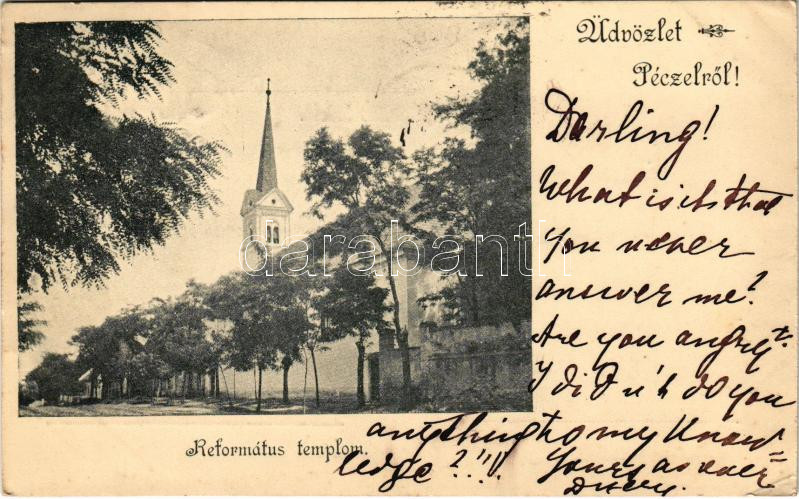 Üdvözlet
Péczelről!
Darling!
What is its that
You never
answer me?
Are you angry?
I did n't do you
anything to my Know=
ledge?!!!
Yours as ever
Református templom.
darabanth